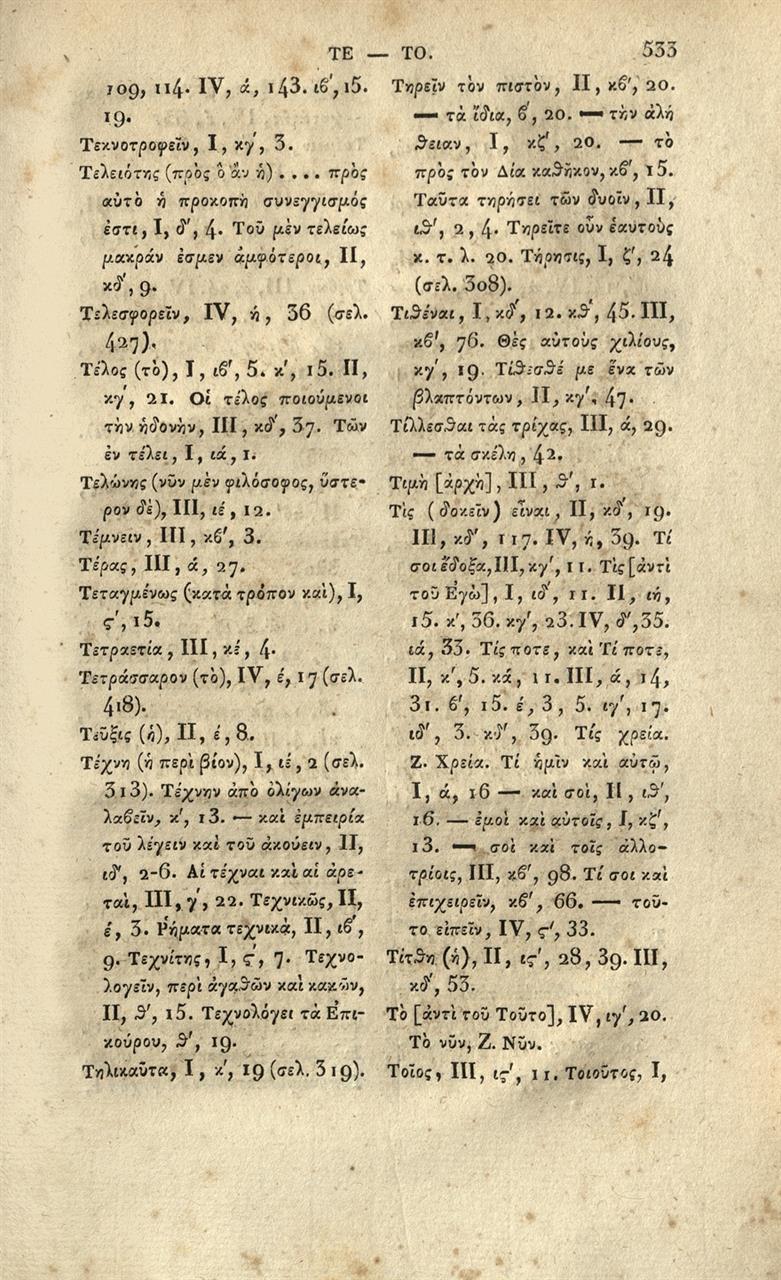 ΤΕ — ΤΟ. 533
109, 114. IV, ά, 143. ιϐ', 15.
19.
Τεκνοτροφεῖν, I, κγ', 3.
Τελειότης (πρὸς ὃ ἂν ἡ) .... πρὸς
αὐτὸ ἡ προκοπὴ συνεγγισμός
ἐστι, I, δ', 4. Τοῦ μὲν τελείως
μακράν ἐσμεν ἀμφότεροι, II,
κδ', 9.
Τελεσφορεῖν, IV, ή, 36 (σελ.
427).
Τέλος (τὸ), I, ιϐ', 5. κ', 15. II,
κγ', 21. Οἱ τέλος ποιούμενοι
τὴν ἡδονὴν, III, κδ', 37. Τῶν
ἐν τέλει, I, ιά, 1.
Τελώνης (νῦν μὲν φιλόσοφος, ὕστε-
ρον δὲ), III, ιέ, 12.
Τέμνειν, III, κϐ', 3.
Τέρας, III, ά, 27.
Τεταγμένως (κατὰ τρόπον καὶ), I,
ς', 15.
Τετραετία, III, κέ, 4.
Τετράσσαρον (τὸ), IV, έ, 17 (σελ.
418).
Τεῦξις (ἡ), II, έ, 8.
Τέχνη (ἡ περὶ βίον), I, ιέ, 2 (σελ.
313). Τέχνην ἀπὸ ὀλίγων ἀνα-
λαϐεῖν, κ', 13. — καὶ ἐμπειρία
τοῦ λέγειν καὶ τοῦ ἀκούειν, II,
ιδ', 2-6. Αἱ τέχναι καὶ αἱ ἀρε-
ταὶ, III, γ', 22. Τεχνικῶς, II,
έ, 3. Ῥήματα τεχνικὰ, II, ιϐ',
9. Τεχνίτης, I, ς', 7. Τεχνο-
λογεῖν, περὶ ἀγαθῶν καὶ κακῶν,
II, θ', 15. Τεχνολόγει τὰ Ἐπι-
κούρου, θ', 19.
Τηλικαῦτα, I, κ', 19 (σελ. 319).
Τηρεῖν τὸν πιστὸν, II, κϐ', 20.
— τὰ ἴδια, ϐ', 20. — τὴν ἀλή
θειαν, I, κζ', 20. — τὸ
πρὸς τὸν Δία καθῆκον, κϐ', 15.
Ταῦτα τηρήσει τῶν δυοῖν, II,
ιθ', 2, 4. Τηρεῖτε οὖν ἑαυτοὺς
κ. τ. λ. 20. Τήρησις, I, ζ', 24
(σελ. 308).
Τιθέναι, I, κδ', 12. κθ', 45. III,
κϐ', 76. Θὲς αὐτοὺς χιλίους,
κγ', 19. Τίθεσθέ με ἕνα τῶν
βλαπτόντων, II, κγ', 47.
Τίλλεσθαι τὰς τρίχας, III, ά, 29.
— τὰ σκέλη, 42.
Τιμὴ [ἀρχὴ], III, θ', 1.
Τὶς (δοκεῖν) εἶναι, II, κδ', 19.
III, κδ', 117. IV, ή, 39. Τί
σοι ἔδοξα, III, κγ', 11. Τὶς [ἀντὶ
τοῦ Ἐγὼ], I, ιδ', 11. II, ιή,
15. κ', 36. κγ', 23. IV, δ', 35.
ιά, 33. Τίς ποτε, καὶ Τί ποτε,
II, κ', 5. κά, 11. III, ά, 14,
31. ϐ', 15. έ, 3, 5. ιγ', 17.
ιδ', 3. κδ', 39. Τίς χρεία.
Ζ. Χρεία. Τί ἡμῖν καὶ αὐτῷ,
I, ά, 16 — καὶ σοὶ, II, ιθ',
16. — ἐμοὶ καὶ αὐτοῖς, I, κζ',
13. — σοὶ καὶ τοῖς ἀλλο-
τρίοις, III, κϐ', 98. Τί σοι καὶ
ἐπιχειρεῖν, κϐ', 66. — τοῦ-
το εἰπεῖν, IV, ς', 33.
Τίτθη (ἡ), II, ις', 28, 39. III,
κδ', 53.
Τὸ [ἀντὶ τοῦ Τοῦτο], IV, ιγ', 20.
Τὸ νῦν, Ζ. Νῦν.
Τοῖος, III, ις', 11. Τοιοῦτος, I,